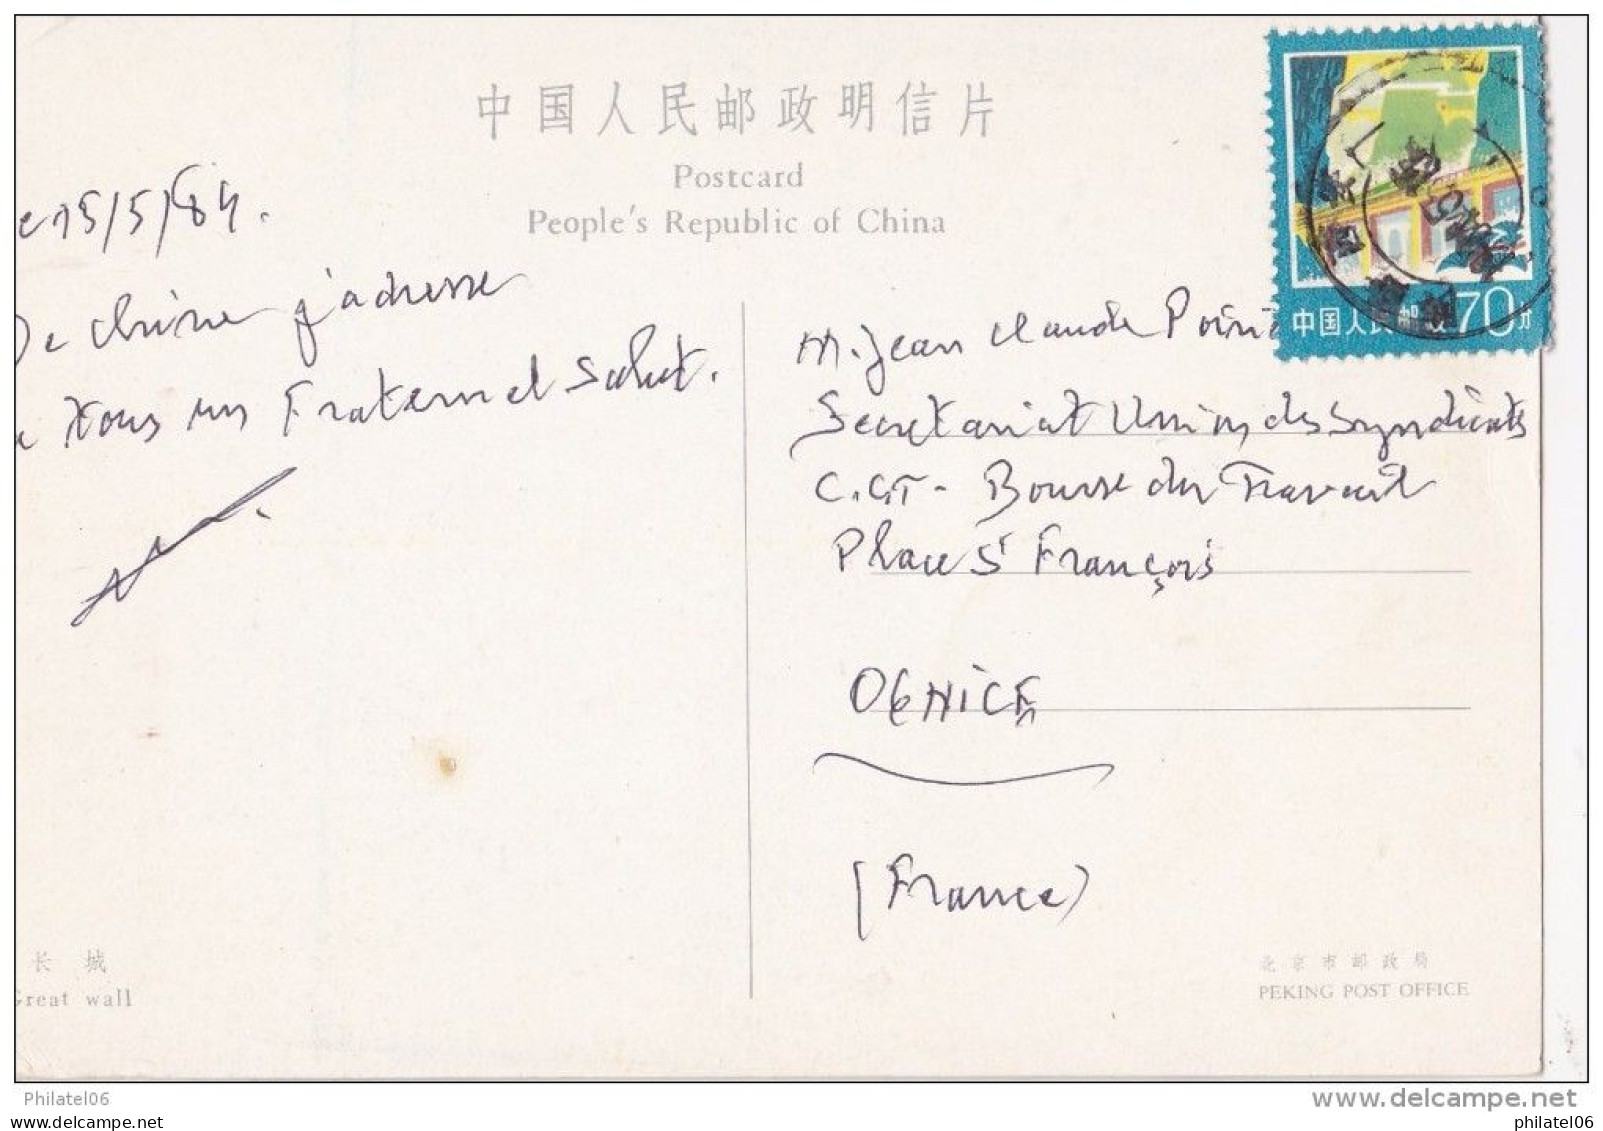 中国人民邮政明信片
Postcard
People's Republic of China
e 15/5/84.
De Chine j'adresse
a tous un Fraternel Salut.
M. Jean Claude Point
Secretariat Union des Syndicats
C.G.T - Bourse du Travail
Place St François
06 NICE
(France)
中国人民邮政 70分
长城
Great wall
北京市邮政局
PEKING POST OFFICE
Philatel06
www.delcampe.net
www.philatel06.com
philatel06